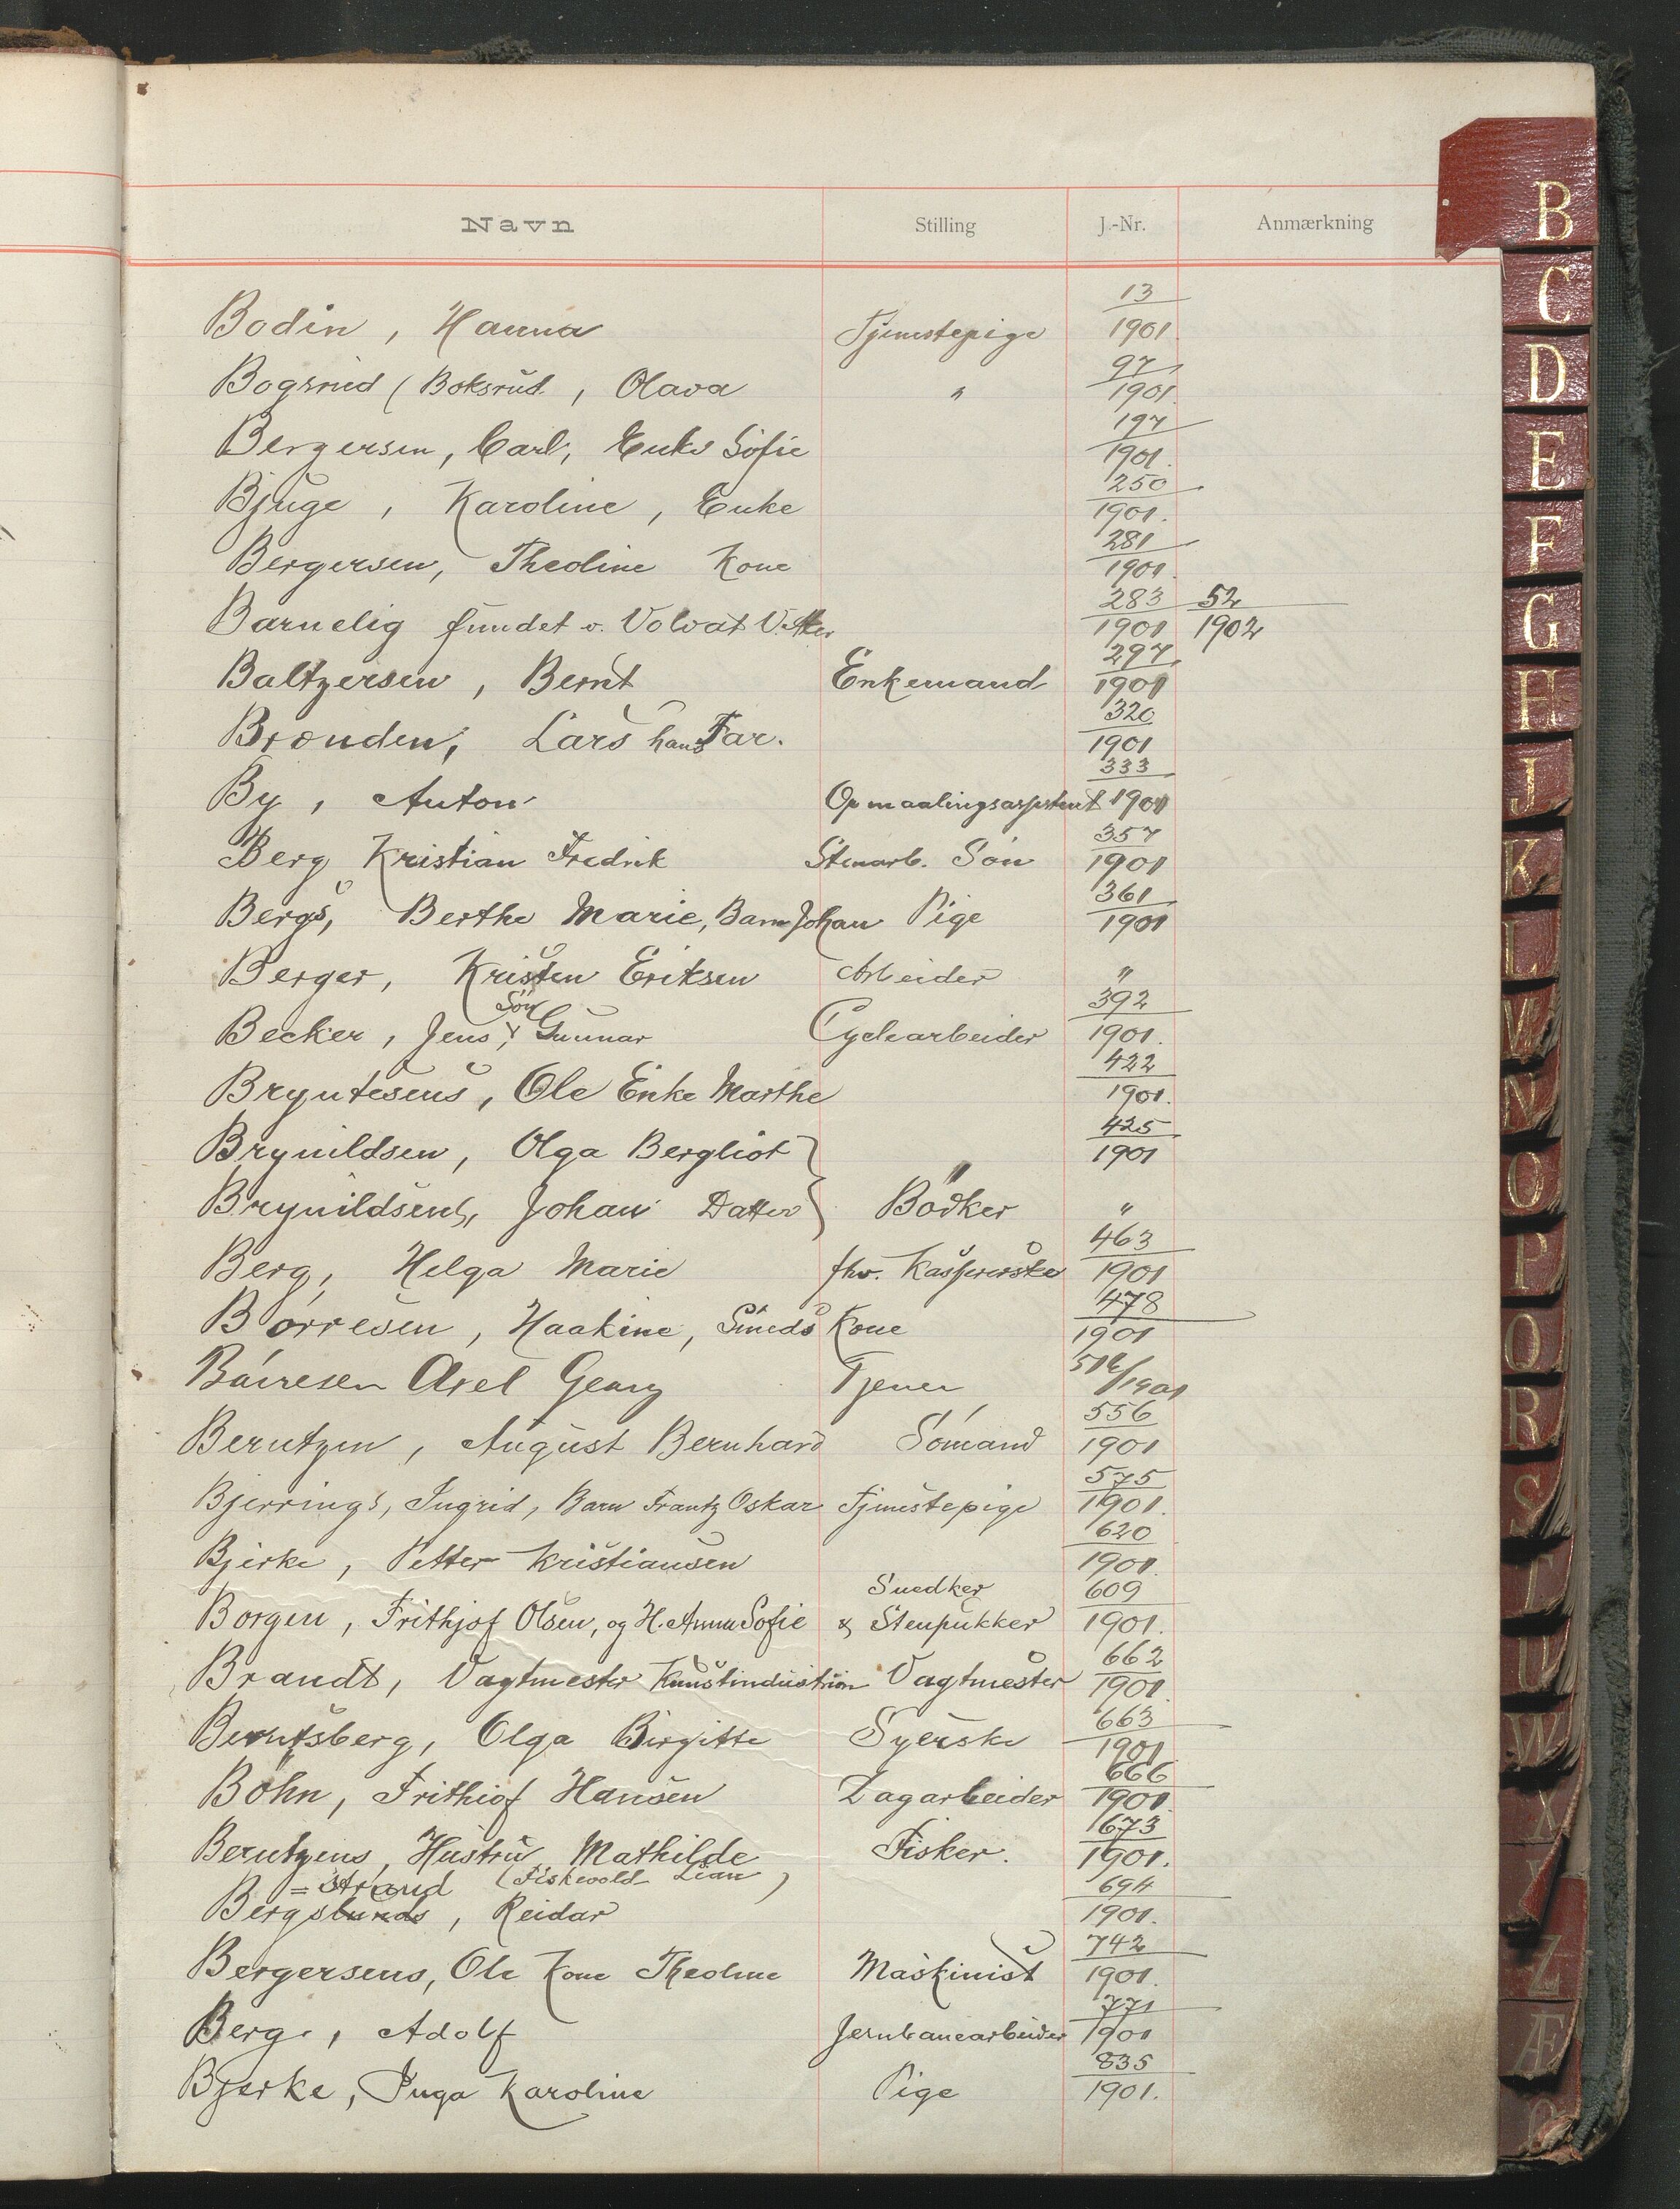 Navn Stilling J.-Nr. Anmærkning
Bodin, Hanna Tjenestepige 13/1901
Bogsrud (Boksrud, Olava " 97/1901.
Bergersen, Carl, Enke Sofie 197/1901.
Bjuge, Karoline, Enke 250/1901.
Bergersen, Theoline Kone 281/1901.
Barnelig fundet v. Volvat 283/1901 52/1902
Baltzersen, Bernt Enkemand 297/1901
Brønden, Lars hans Far. 320/1901
By, Anton Opmaalingsassistent 333/1901
Berg Kristian Fredrik Stenarb. Søn 357/1901
Bergs, Berthe Marie, Barn Johan Pige 361/1901
Berger, Kristen Eriksen Arbeider "
Becker, Jens, Søn Gunnar Cyclearbeider 392/1901.
Bryntesens, Ole Enke Marthe 422/1901.
Brynildsen, Olga Bergliot " 425/1901
Brynildsens, Johan Datter Bødker "
Berg, Helga Marie fhv. Kassererske 463/1901
Børresen, Haakine, Smeds Kone 478/1901
Børresen Axel Georg Tjener 516/1901
Berntzen, August Bernhard Sømand 556/1901
Bjerrings, Ingrid, Barn Frantz Oskar Tjenestepige 575/1901.
Bjerke, Petter Kristiansen 620/1901
Borgen, Frithjof Olsen, og H. Anna Sofie Snedker & Stenpukker 609/1901.
Brandt, Vagtmester Kunstindustrien Vagtmester 662/1901
Berntsberg, Olga Birgitte Syerske 663/1901
Bøhn, Frithiof Hansen Lagarbeider 666/1901
Berntzens, Hustru Mathilde Fisker. 673/1901.
= strand (Fiskevold Lian)
Bergslunds, Reidar 694/1901.
Bergersens, Ole Kone Theoline Maskinist 742/1901.
Berg, Adolf Jernbanearbeider 771/1901
Bjerke, Inga Karoline Pige 835/1901.
B
C
D
E
F
G
H
J
K
L
M
N
O
P
Q
R
S
T
U
W
X
Y
Z
Æ
Ø